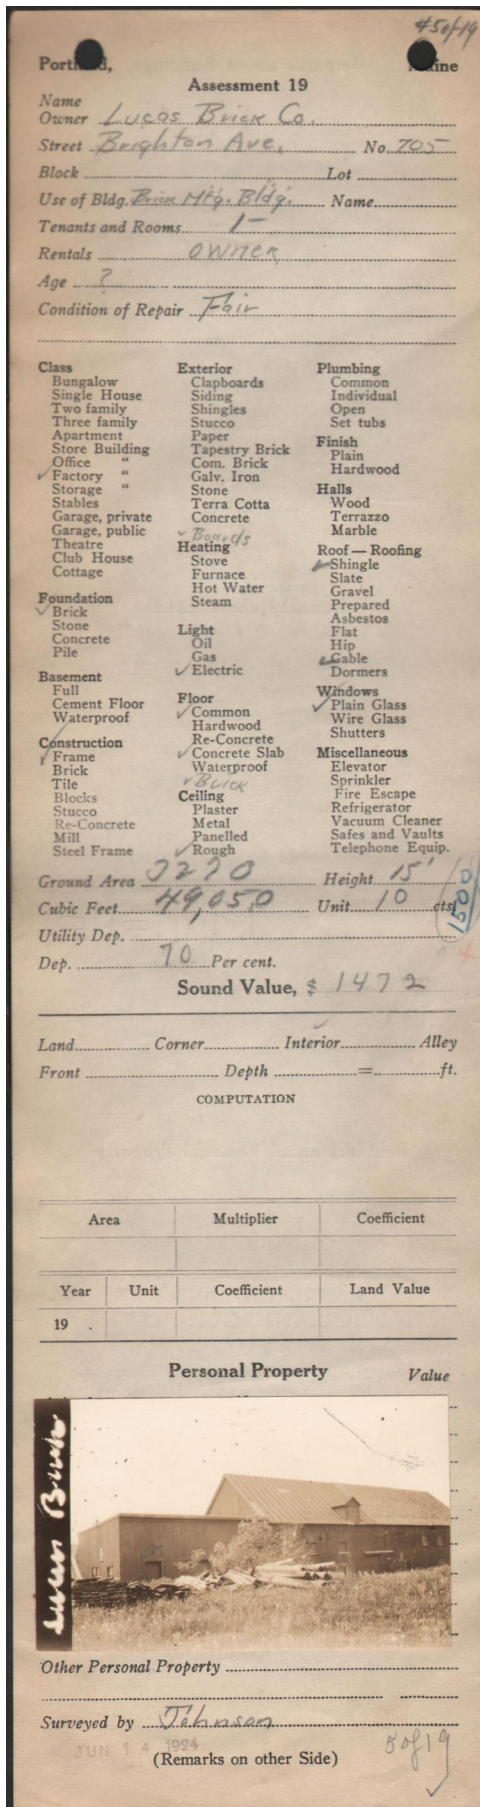 #5 of 19
Portland, Maine
Assessment 19
Name
Owner Lucas Brick Co.
Street Brighton Ave. No. 705
Block Lot
Use of Bldg. Brick Mfg. Bldg. Name
Tenants and Rooms 1-
Rentals owner
Age ?
Condition of Repair Fair
Class
Bungalow
Single House
Two family
Three family
Apartment
Store Building
Office "
✓ Factory "
Storage "
Stables
Garage, private
Garage, public
Theatre
Club House
Cottage
Foundation
✓ Brick
Stone
Concrete
Pile
Basement
Full
Cement Floor
Waterproof
Construction
✓ Frame
Brick
Tile
Blocks
Stucco
Re-Concrete
Mill
Steel Frame
Exterior
Clapboards
Siding
Shingles
Stucco
Paper
Tapestry Brick
Com. Brick
Galv. Iron
Stone
Terra Cotta
Concrete
✓ Boards
Heating
Stove
Furnace
Hot Water
Steam
Light
Oil
Gas
✓ Electric
Floor
✓ Common
Hardwood
Re-Concrete
✓ Concrete Slab
Waterproof
✓ Brick
Ceiling
Plaster
Metal
Panelled
✓ Rough
Plumbing
Common
Individual
Open
Set tubs
Finish
Plain
Hardwood
Halls
Wood
Terrazzo
Marble
Roof — Roofing
✓ Shingle
Slate
Gravel
Prepared
Asbestos
Flat
Hip
✓ Gable
Dormers
Windows
✓ Plain Glass
Wire Glass
Shutters
Miscellaneous
Elevator
Sprinkler
Fire Escape
Refrigerator
Vacuum Cleaner
Safes and Vaults
Telephone Equip.
Ground Area 3270 Height 15'
Cubic Feet 49,050 Unit 10 cts.
1500
Utility Dep.
Dep. 70 Per cent.
Sound Value, $ 1472
Land Corner Interior Alley
Front Depth = ft.
COMPUTATION
Area Multiplier Coefficient
Year Unit Coefficient Land Value
19 .
Personal Property Value
Lucas Brick
Other Personal Property
Surveyed by Johnson
JUN 14 1924
(Remarks on other Side)
5 of 19